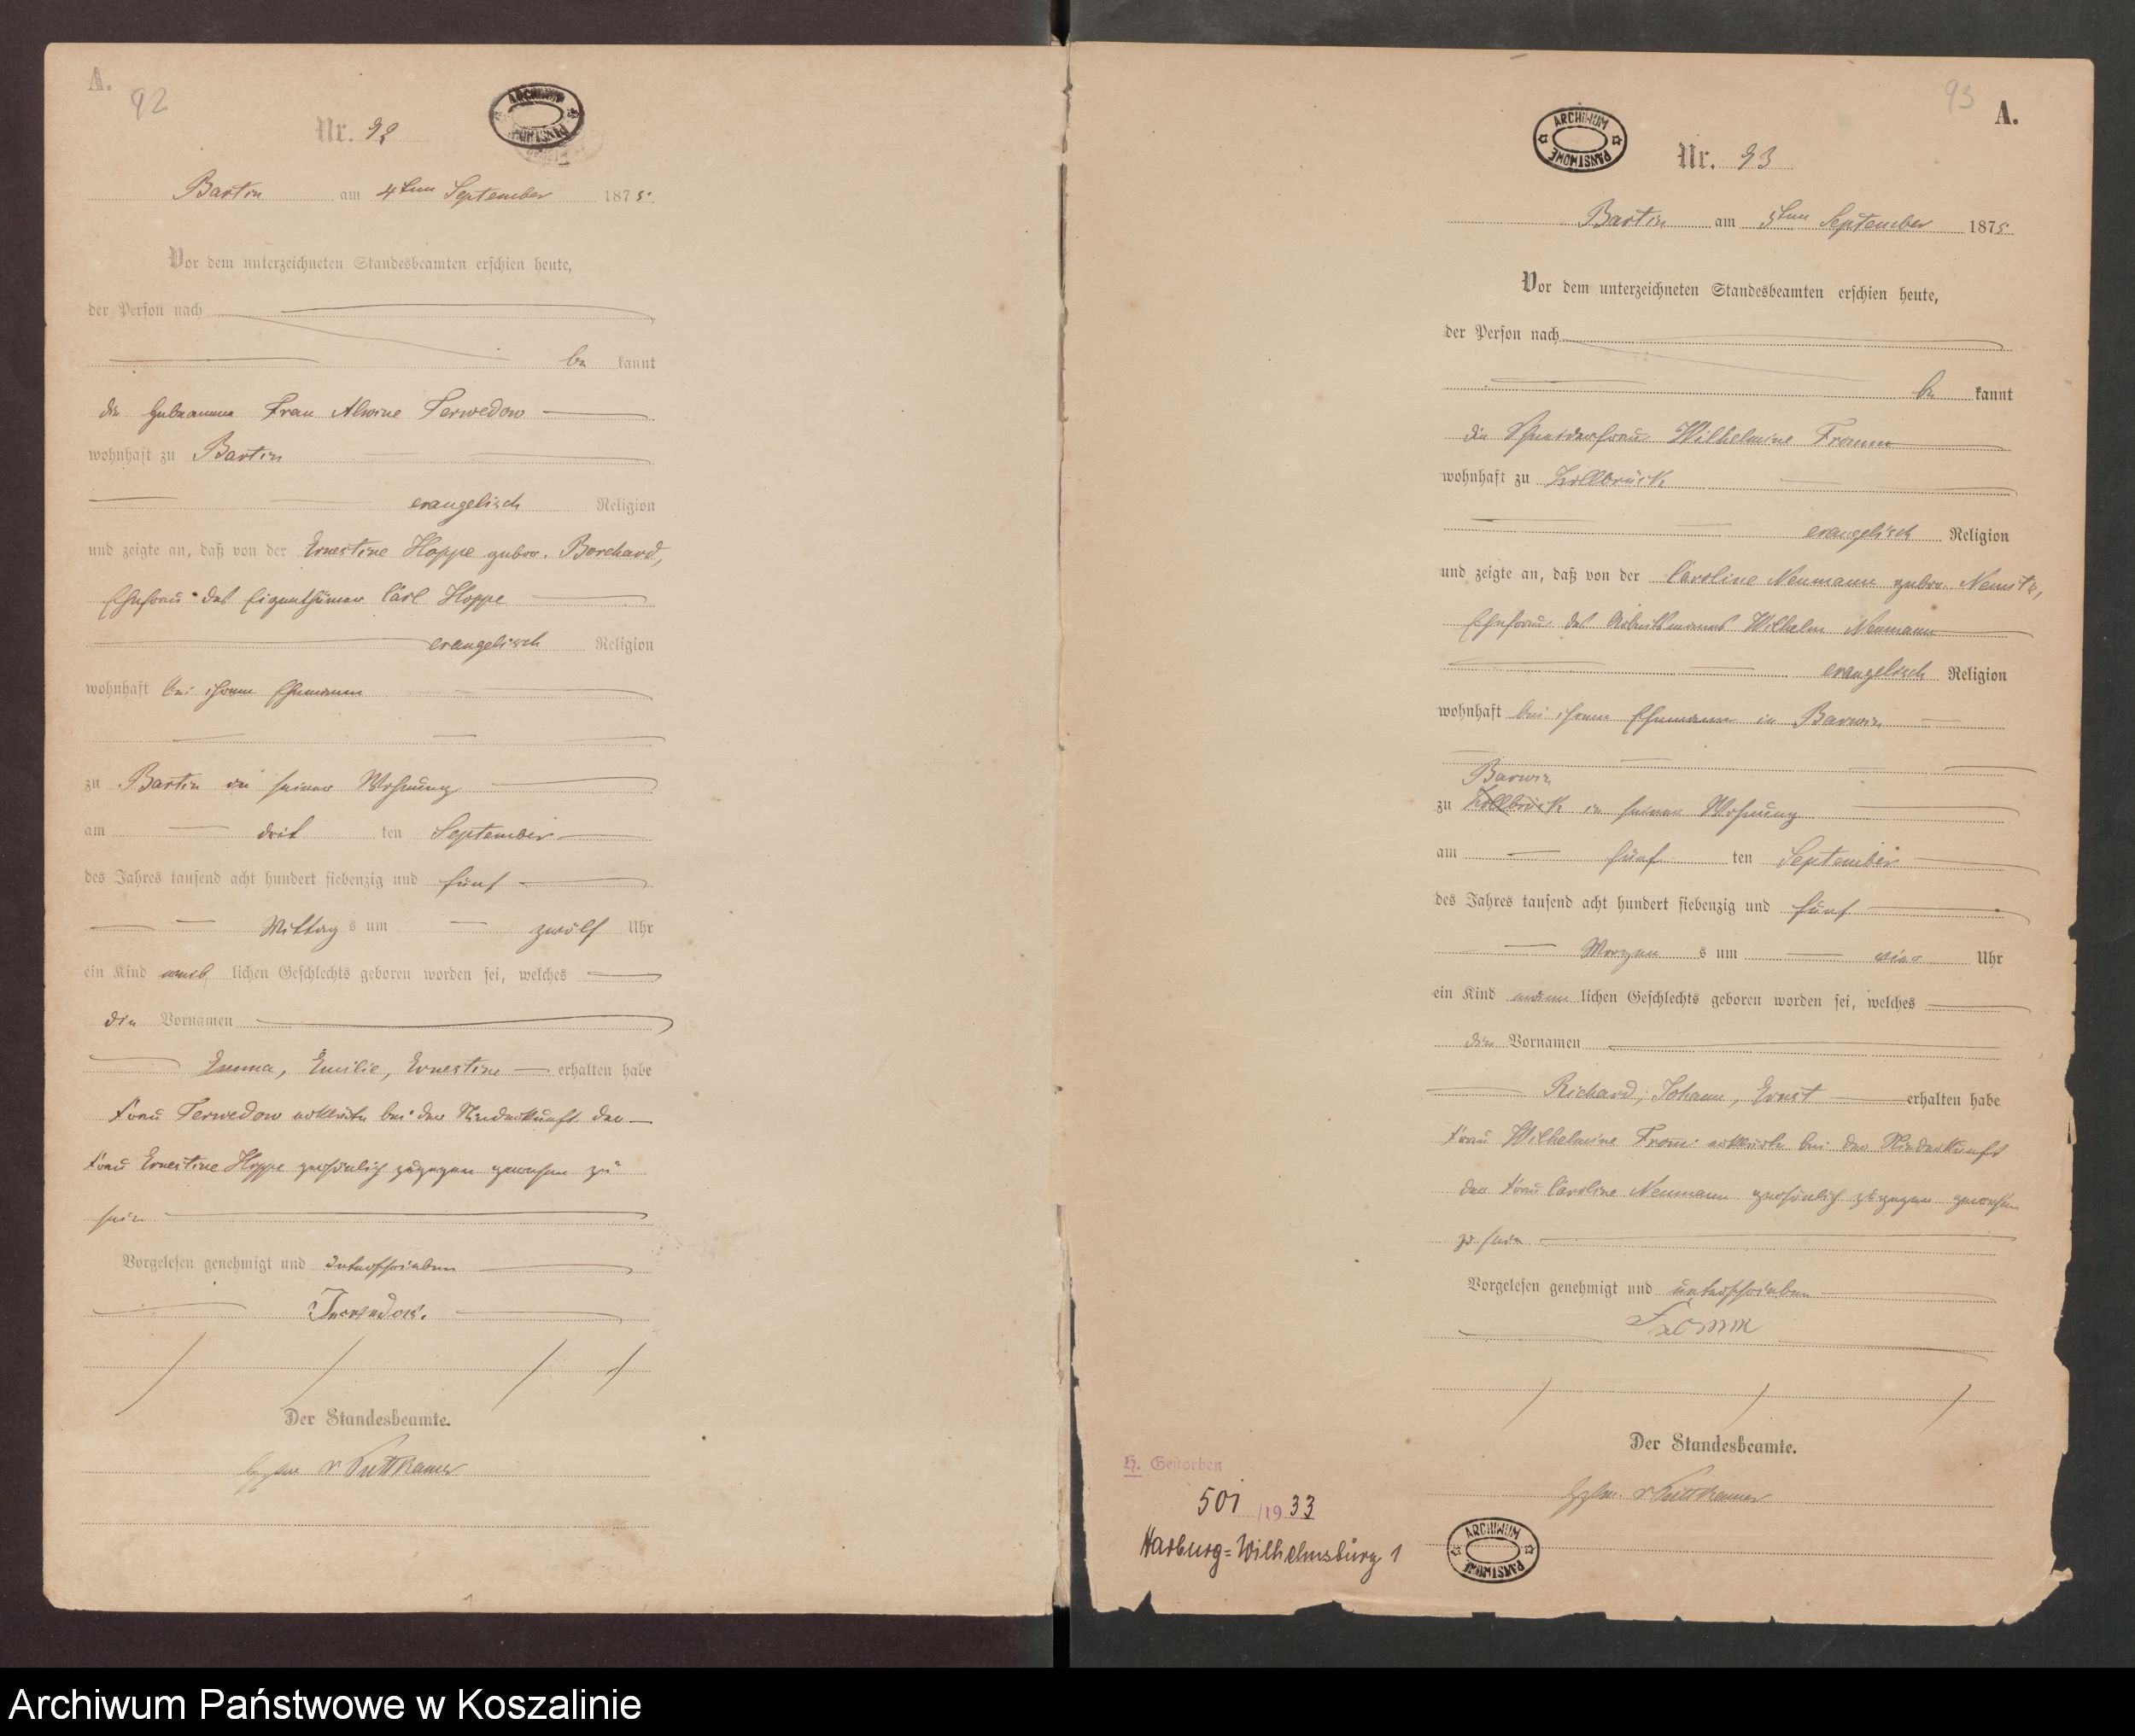 A.
92
Nr. 92
ARCHIWUM PAŃSTWOWE
Bartin am 4ten September 1875.
Vor dem unterzeichneten Standesbeamten erschien heute,
der Person nach
be kannt
die Hebamme Frau Alwine Terwedow
wohnhaft zu Bartin
evangelisch Religion
und zeigte an, daß von der Ernestine Hoppe gebor. Borchard,
Ehefrau des Eigenthümer Carl Hoppe
evangelisch Religion
wohnhaft bei ihrem Ehemann
zu Bartin in seiner Wohnung
am drit ten September
des Jahres tausend acht hundert siebenzig und fünf
Mittag s um zwölf Uhr
ein Kind weib lichen Geschlechts geboren worden sei, welches
die Vornamen
Emma, Emilie, Ernestine erhalten habe
Frau Terwedow erklärte bei der Niederkunft der
Frau Ernestine Hoppe persönlich zugegen gewesen zu
sein
Vorgelesen genehmigt und unterschrieben
Terwedow.
Der Standesbeamte.
v Puttkamer
93
A.
ARCHIWUM PAŃSTWOWE
Nr. 93
Bartin am 5ten September 1875
Vor dem unterzeichneten Standesbeamten erschien heute,
der Person nach
be kannt
die Schneiderfrau Wilhelmine Fromm
wohnhaft zu Zollbrück
evangelisch Religion
und zeigte an, daß von der Caroline Neumann gebor. Nemitz,
Ehefrau des Arbeitsmanns Wilhelm Neumann
evangelisch Religion
wohnhaft bei ihrem Ehemann in Barwin
Barwin
zu Zollbrück in seiner Wohnung
am fünf ten September
des Jahres tausend acht hundert siebenzig und fünf
Morgen s um vier Uhr
ein Kind männ lichen Geschlechts geboren worden sei, welches
die Vornamen
Richard, Johann, Ernst erhalten habe
Frau Wilhelmine Fromm erklärte bei der Niederkunft
der Frau Caroline Neumann persönlich zugegen gewesen
zu sein
Vorgelesen genehmigt und unterschrieben
Fromm
Der Standesbeamte.
v Puttkamer
H. Gestorben
501 /1933
Harburg=Wilhelmsburg 1
ARCHIWUM PAŃSTWOWE
Archiwum Państwowe w Koszalinie